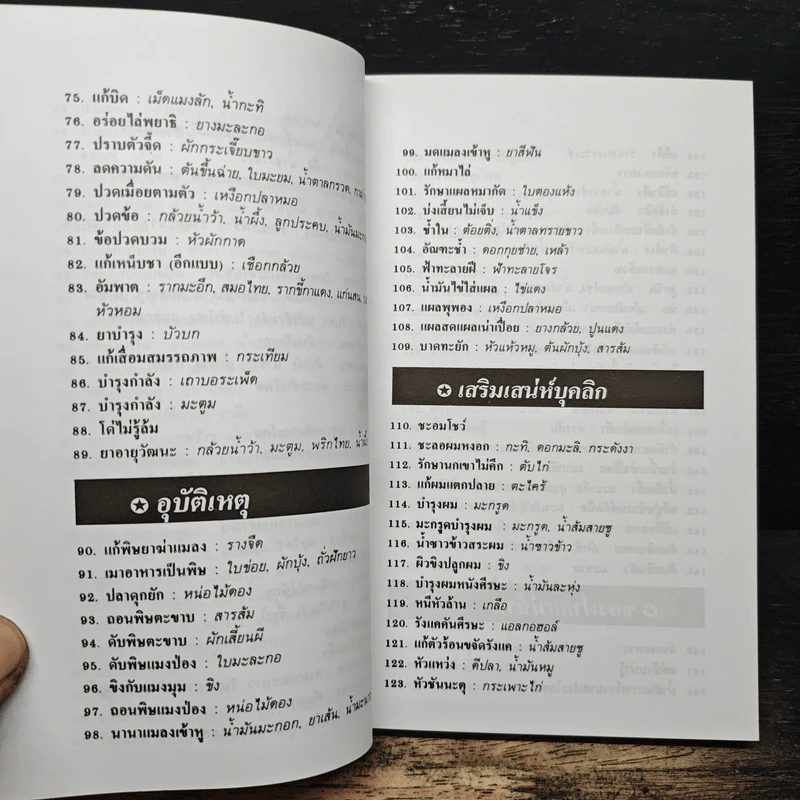 75. แก้บิด : เม็ดแมงลัก, น้ำกะทิ
76. อร่อยไล่พยาธิ : ยางมะละกอ
77. ปราบตัวจี๊ด : ผักกระเจี๊ยบขาว
78. ลดความดัน : ต้นขึ้นฉ่าย, ใบมะยม, น้ำตาลกรวด,
79. ปวดเมื่อยตามตัว : เหงือกปลาหมอ
80. ปวดข้อ : กล้วยน้ำว้า, น้ำผึ้ง, ลูกประคบ,
81. ข้อปวดบวม : หัวผักกาด
82. แก้เหน็บชา (อีกแบบ) : เชือกกล้วย
83. อัมพาต : รากมะอึก, สมอไทย, รากขี้กาแดง, แก่นสน,
หัวหอม
84. ยาบำรุง : บัวบก
85. แก้เสื่อมสมรรถภาพ : กระเทียม
86. บำรุงกำลัง : เถาบอระเพ็ด
87. บำรุงกำลัง : มะตูม
88. โด่ไม่รู้ล้ม
89. ยาอายุวัฒนะ : กล้วยน้ำว้า, มะตูม, พริกไทย,
✪ อุบัติเหตุ
90. แก้พิษยาฆ่าแมลง : รางจืด
91. เมาอาหารเป็นพิษ : ใบข่อย, ผักบุ้ง, ถั่วฝักยาว
92. ปลาดุกยัก : หน่อไม้ดอง
93. ถอนพิษตะขาบ : สารส้ม
94. ดับพิษตะขาบ : ผักเสี้ยนผี
95. ดับพิษแมงป่อง : ใบมะละกอ
96. ขิงกับแมงมุม : ขิง
97. ถอนพิษแมงป่อง : หน่อไม้ดอง
98. นานาแมลงเข้าหู : น้ำมันมะกอก, ยาเส้น,
99. มดแมลงเข้าหู : ยาสีฟัน
100. แก้หมาไล่
101. รักษาแผลหมากัด : ใบตองแห้ง
102. บ่งเสี้ยนไม่เจ็บ : น้ำแข็ง
103. ช้ำใน : ต้อยติ่ง, น้ำตาลทรายขาว
104. อัณฑะช้ำ : ดอกกุยช่าย, เหล้า
105. ฟ้าทะลายฝี : ฟ้าทะลายโจร
106. น้ำมันไข่ใส่แผล : ไข่แดง
107. แผลพุพอง : เหงือกปลาหมอ
108. แผลสดแผลเน่าเปื่อย : ยางกล้วย, ปูนแดง
109. บาดทะยัก : หัวแห้วหมู, ต้นผักบุ้ง, สารส้ม
✪ เสริมเสน่ห์บุคลิก
110. ชะอมโชว์
111. ชะลอผมหงอก : กะทิ, ดอกมะลิ, กระดังงา
112. รักษานกเขาไม่คึก : ตับไก่
113. แก้ผมแตกปลาย : ตะไคร้
114. บำรุงผม : มะกรูด
115. มะกรูดบำรุงผม : มะกรูด, น้ำส้มสายชู
116. น้ำซาวข้าวสระผม : น้ำซาวข้าว
117. ผิวขิงปลูกผม : ขิง
118. บำรุงผมหนังศีรษะ : น้ำมันละหุ่ง
119. หนีหัวล้าน : เกลือ
120. รังแคคันศีรษะ : แอลกอฮอล์
121. แก้ตัวร้อนขจัดรังแค : น้ำส้มสายชู
122. หัวแหว่ง : ดีปลา, น้ำมันหมู
123. หัวชันนะตุ : กระเพาะไก่